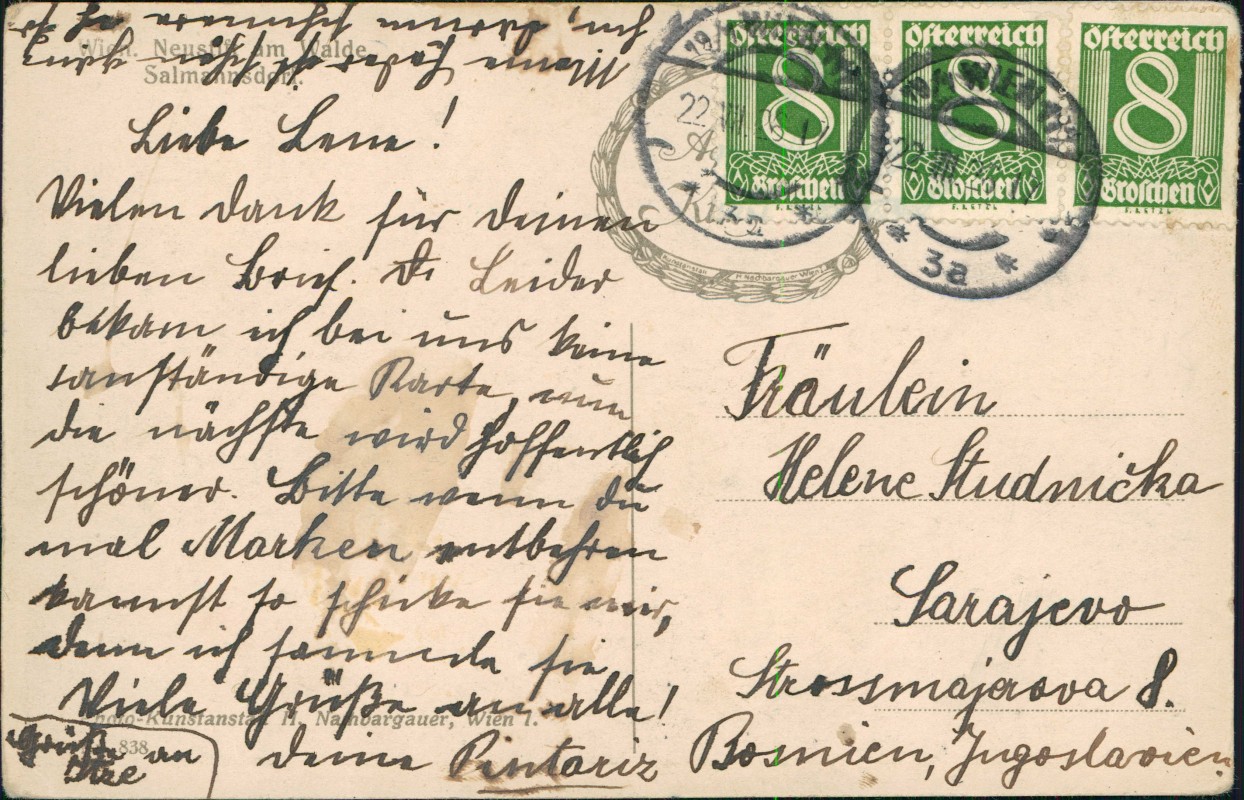 Wien. Neustift am Walde
Salmannsdorf.
Liebe Lene!
Vielen Dank für deinen
lieben Brief. D. Leider
bekam ich bei uns keine
anständige Karte, nun
die nächste wird hoffentlich
schöner. Bitte wenn du
mal Marken entbehren
kannst so schicke sie mir,
denn ich sammele sie
Viele Grüße an alle!
deine Pintariz
Grüße an
Photo-Kunstanstalt H. Nachbargauer, Wien I.
838
Österreich
8
Groschen
Österreich
8
Groschen
Österreich
8
Groschen
WIEN
22
VIII
3a
WIEN
22
VIII
3a
Kunstanstalt H. Nachbargauer Wien I
Fräulein
Helene Studnička
Sarajevo
Strossmajerova 8.
Bosnien, Jugoslavien